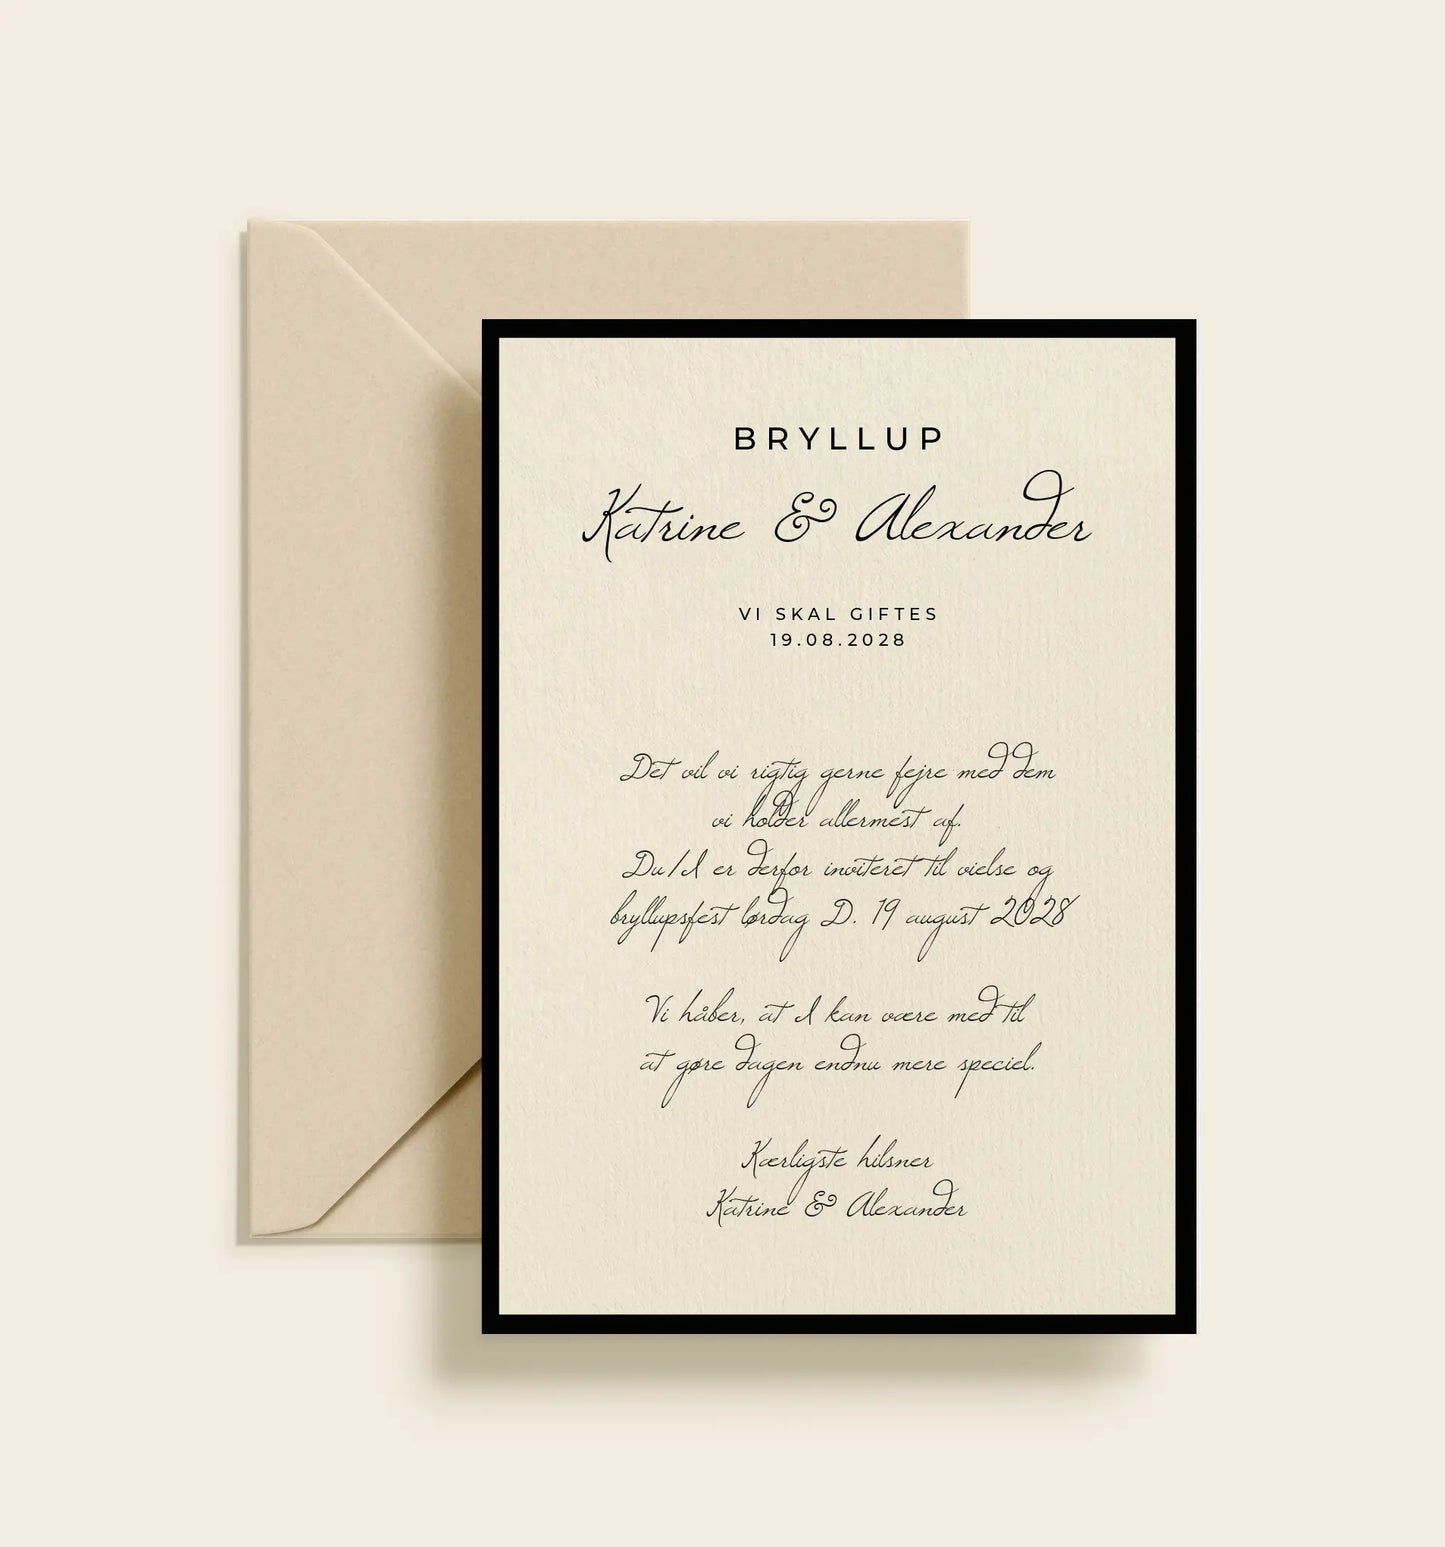 BRYLLUP
Katrine & Alexander
VI SKAL GIFTES
19.08.2028
Det vil vi rigtig gerne fejre med dem
vi holder allermest af.
Du/I er derfor inviteret til vielse og
bryllupsfest lørdag D. 19 august 2028
Vi håber, at I kan være med til
at gøre dagen endnu mere speciel.
Kærligste hilsner
Katrine & Alexander